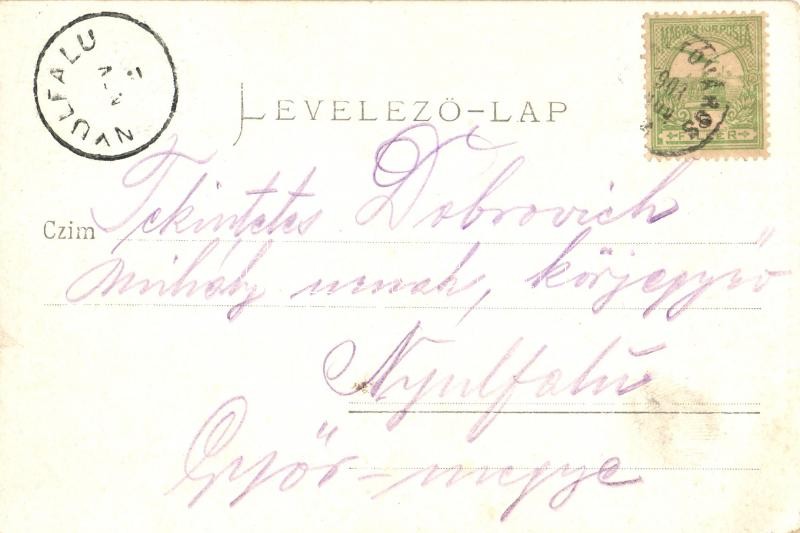 NYULFALU
MAGYAR KIR. POSTA
LEVELEZŐ-LAP
FILLÉR
Czim
Tekintetes Dobrovich
Mihály urnak, körjegyző
Nyulfalu
Győr-megye